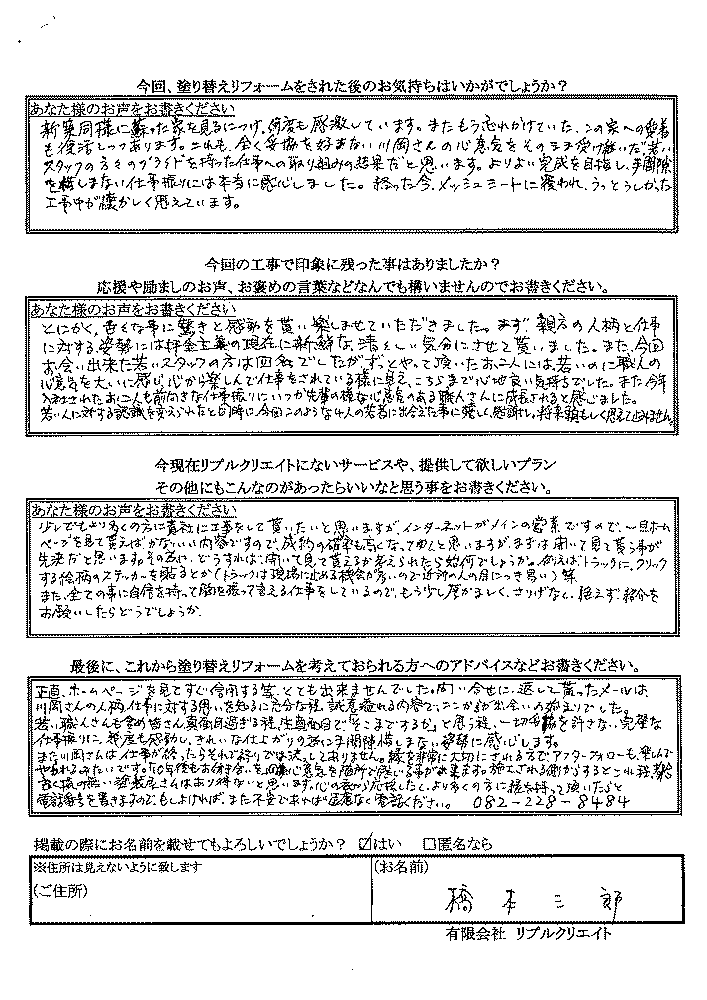 今回、塗り替えリフォームをされた後のお気持ちはいかがでしょうか？
あなた様のお声をお書きください
新築同様に蘇った家を見るにつけ、何度も感激しています。またもう忘れかけていた、この家への愛着
も復活しつつあります。これも、全く妥協を好まない川岡さんの心意気をそのまま受け継いだ若い
スタッフの方々のプライドを持った仕事への取り組みの結果だと思います。よりよい完成を目指し、手間隙
を惜しまない仕事振りには本当に感心しました。終った今、メッシュシートに覆われ、うっとうしかった
工事中が懐かしく思えています。
今回の工事で印象に残った事はありましたか？
応援や励ましのお声、お褒めの言葉などなんでも構いませんのでお書きください。
あなた様のお声をお書きください
とにかく、色々な事に驚きと感動を貰い楽しませていただきました。まず、親方の人柄と仕事
に対する姿勢には拝金主義の現在に新鮮な、清々しい気分にさせて貰いました。また、今回
お会い出来た若いスタッフの方は四名でしたがずっとやって頂いたお二人には、若いのに職人の
心意気を大いに感じ、心から楽しんで仕事をされている様に見え、こちらまで心地良い気持ちでした。また今年
入社されたお二人も前向きな仕事振りにいつか先輩の様な心意気のある職人さんに成長されると感じました。
若い人に対する認識を変えられたと同時に今回このような四人の若者に出会えた事に嬉しく感謝し、将来頼もしく思えて止みません。
今現在リプルクリエイトにないサービスや、提供して欲しいプラン
その他にもこんなのがあったらいいなと思う事をお書きください。
あなた様のお声をお書きください
少しでもより多くの方に貴社に工事をして貰いたいと思いますが、インターネットがメインの営業ですので、一旦ホーム
ページを見て貰えばかなりいい内容ですので、成約の確率も高くなって申しと思いますが、まずは開いて見て貰う事が
先決だと思います。その為に、どうすれば、開いて見て貰えるか考えられたら如何でしょうか。例えばトラックに、クリック
する絵柄のステッカーを貼るとか（トラックは現場に止める機会が多いので近所の人の目につき易い）等
また、全ての事に自信を持って胸を張って言える仕事をしているので、もう少し厚かましく、さりげなく、絶えず紹介を
お願いしたらどうでしょうか。
最後に、これから塗り替えリフォームを考えておられる方へのアドバイスなどお書きください。
正直、ホームページを見てすぐ信用する等、とても出来ませんでした。問い合せに、返して貰ったメールは、
川岡さんの人柄仕事に対する思いを知るに充分な程、誠意溢れる内容で、ここからが出会いの始まりでした。
若い職人さんも含め皆さん真面目過ぎる程、生真面目で「そこまでするか」と思う程、一切妥協を許さない完璧な
仕事振りに、幾度も感動し、きれいな仕上がりの為に手間隙惜しまない姿勢に感心します。
また川岡さんは仕事が終ったらそれで終りでは決してありません。縁を非常に大切にされる方でアフターフォローも、楽しんで
やられるみたいです。「10年後もお付き合い」をの心意気を随所で感じる事が出来ます。施工される側からするとこれ程
の無い塗装屋さんはあり得ないと思います。心の底から応援したく、より多くの方に縁を持って頂いたらと
電話番号を書きますので、もしよければ、また不安であれば遠慮なく電話ください。 082-228-8484
掲載の際にお名前を載せてもよろしいでしょうか？ ☑はい □匿名なら
※住所は見えないように致します
（ご住所）
（お名前）
橋本三郎
有限会社 リプルクリエイト